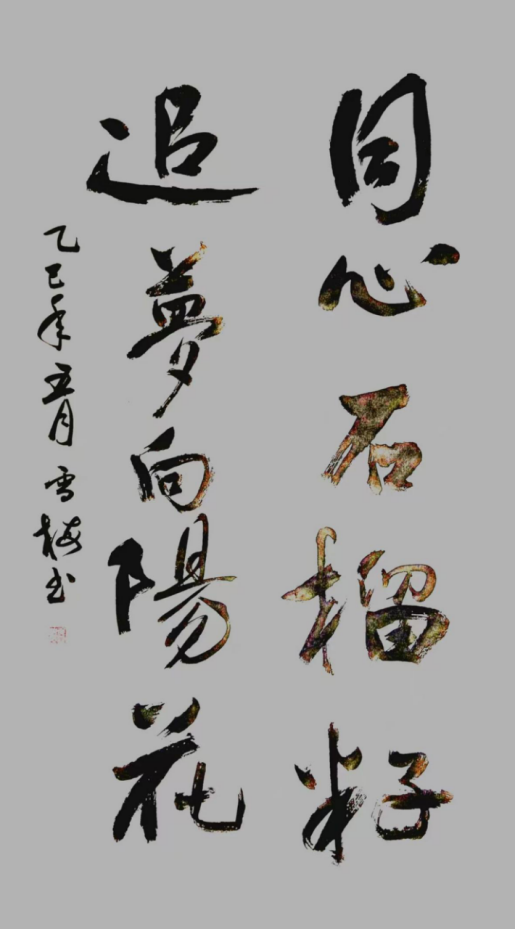 同心石榴籽
追夢向陽花
乙巳年五月雪梅书